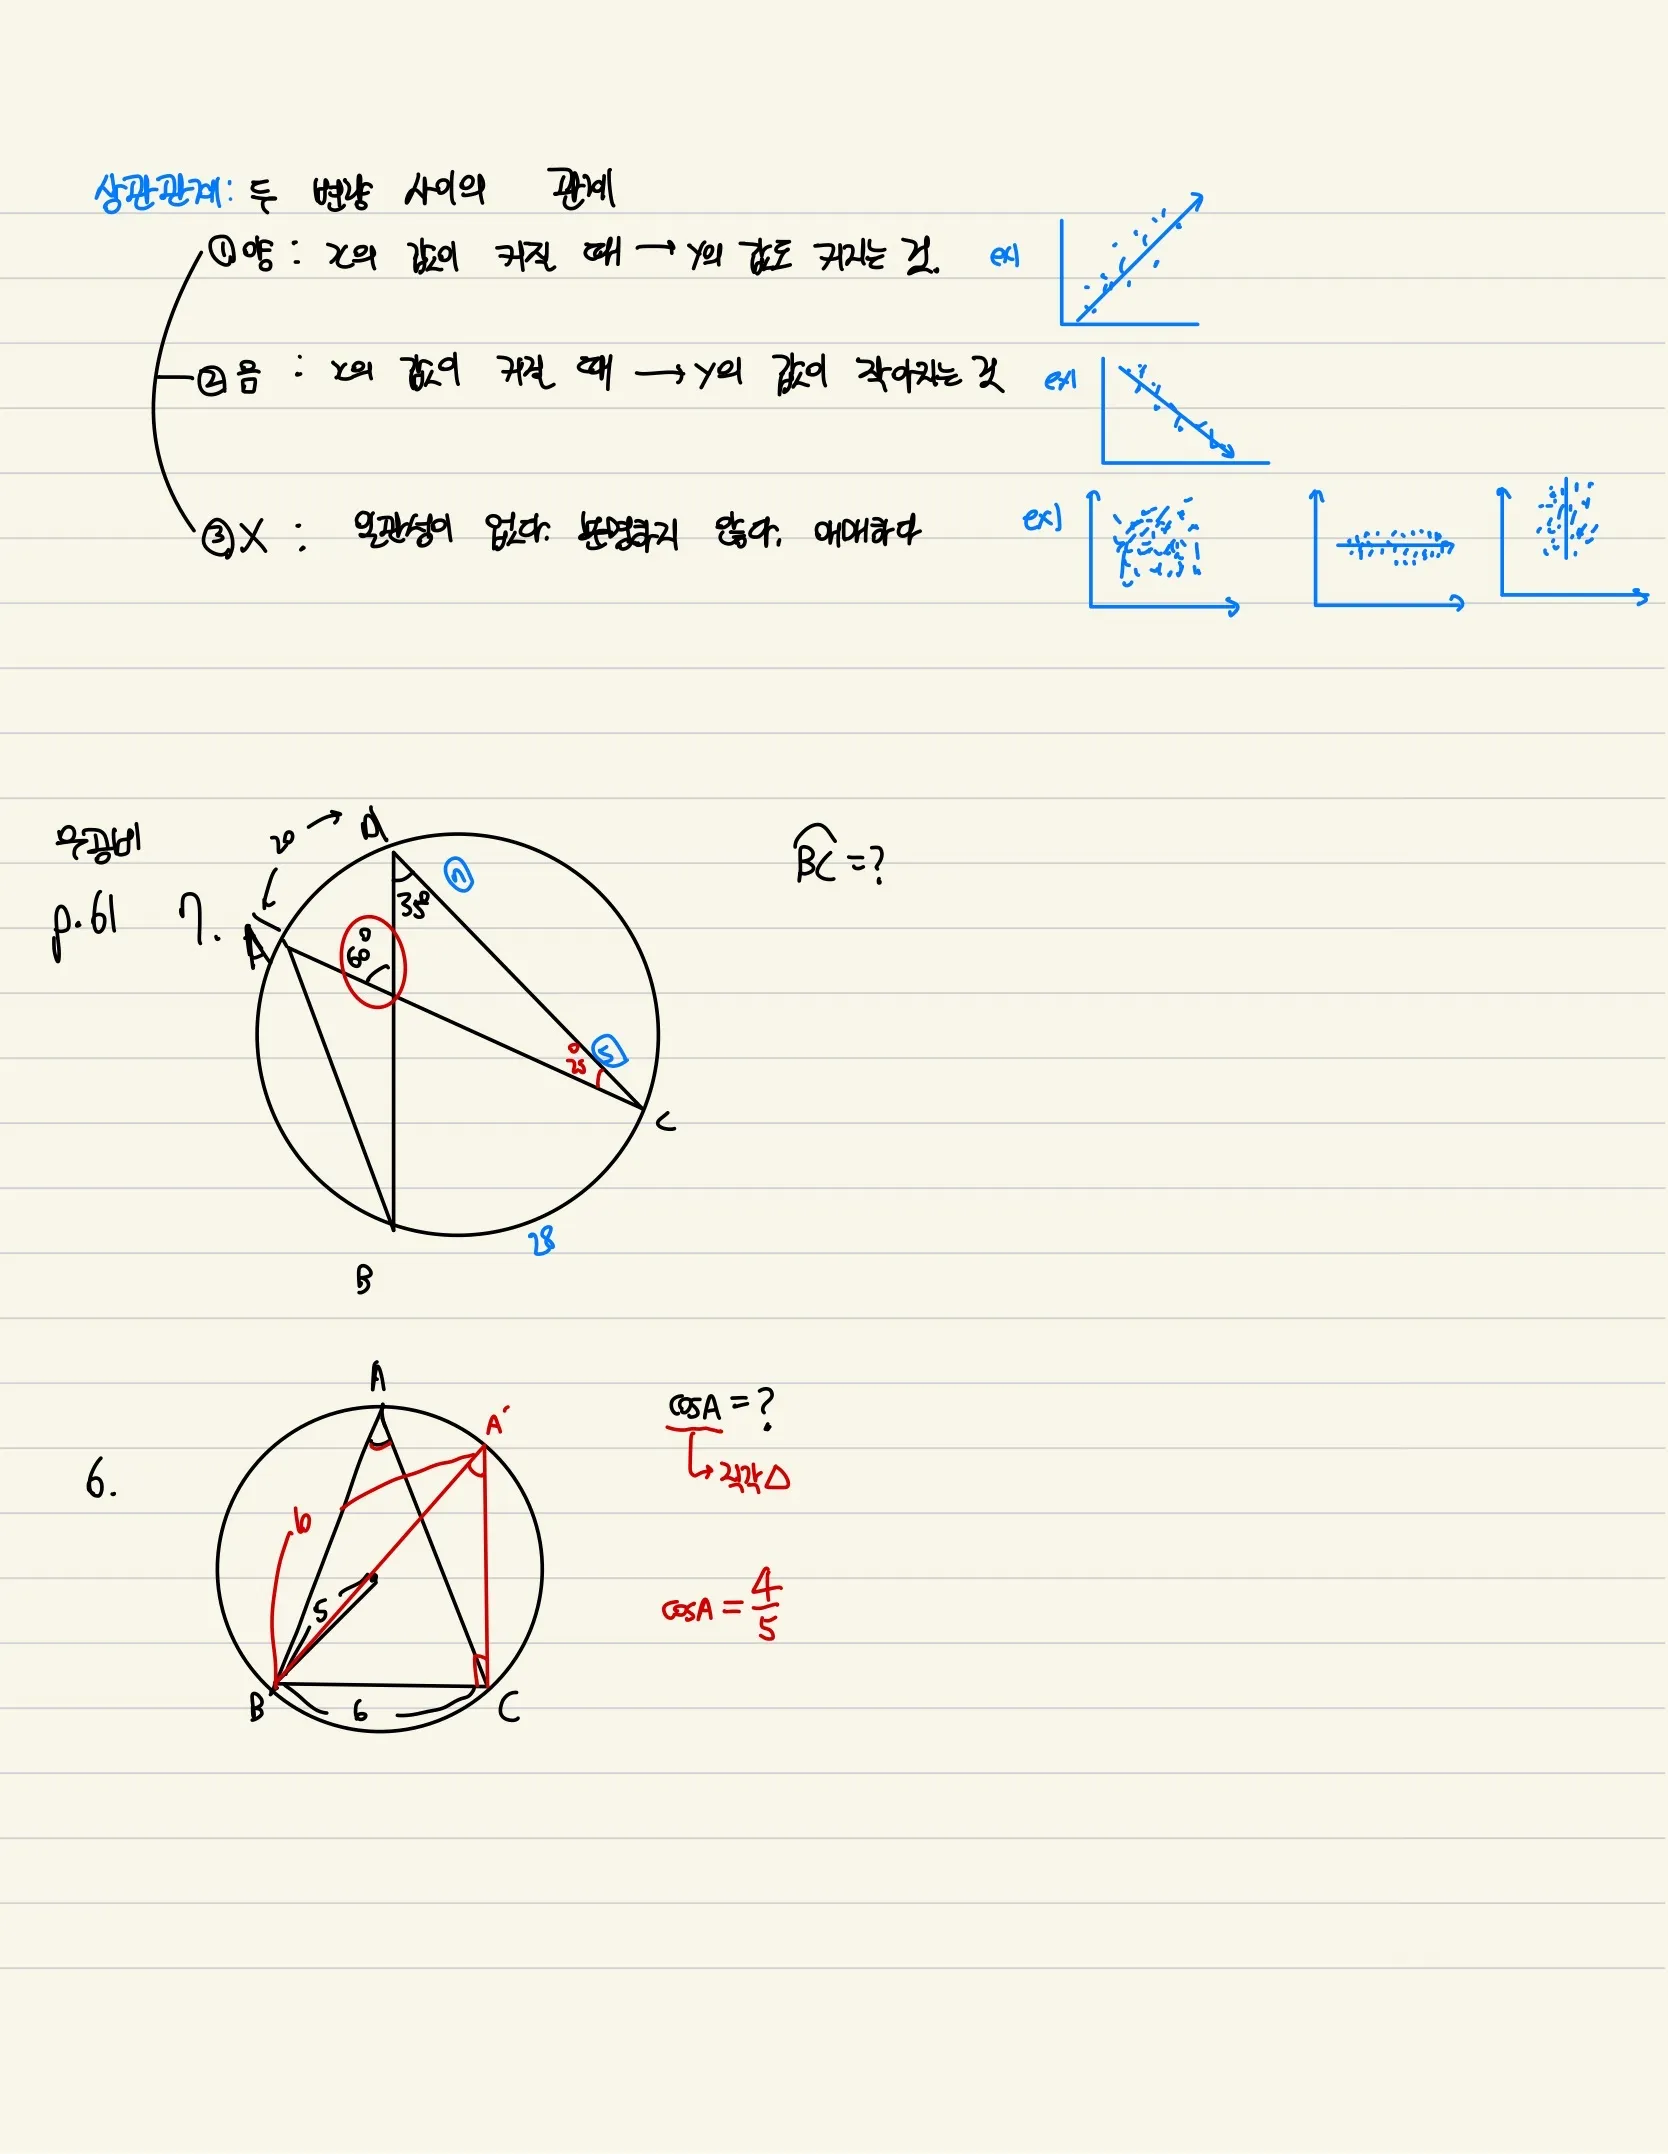 상관관계: 두 변량 사이의 관계
①양 : x의 값이 커질 때 → y의 값도 커지는 것. ex)
②음 : x의 값이 커질 때 → y의 값이 작아지는 것 ex)
③X : 일관성이 없다. 분명하지 않다. 애매하다 ex)
우공비
p.61 7.
20
D
A
35°
⑦
60°
25°
⑤
C
28
B
BC = ?
6.
A
A´
6
5
B
6
C
cosA = ?
직각△
cosA = 4/5